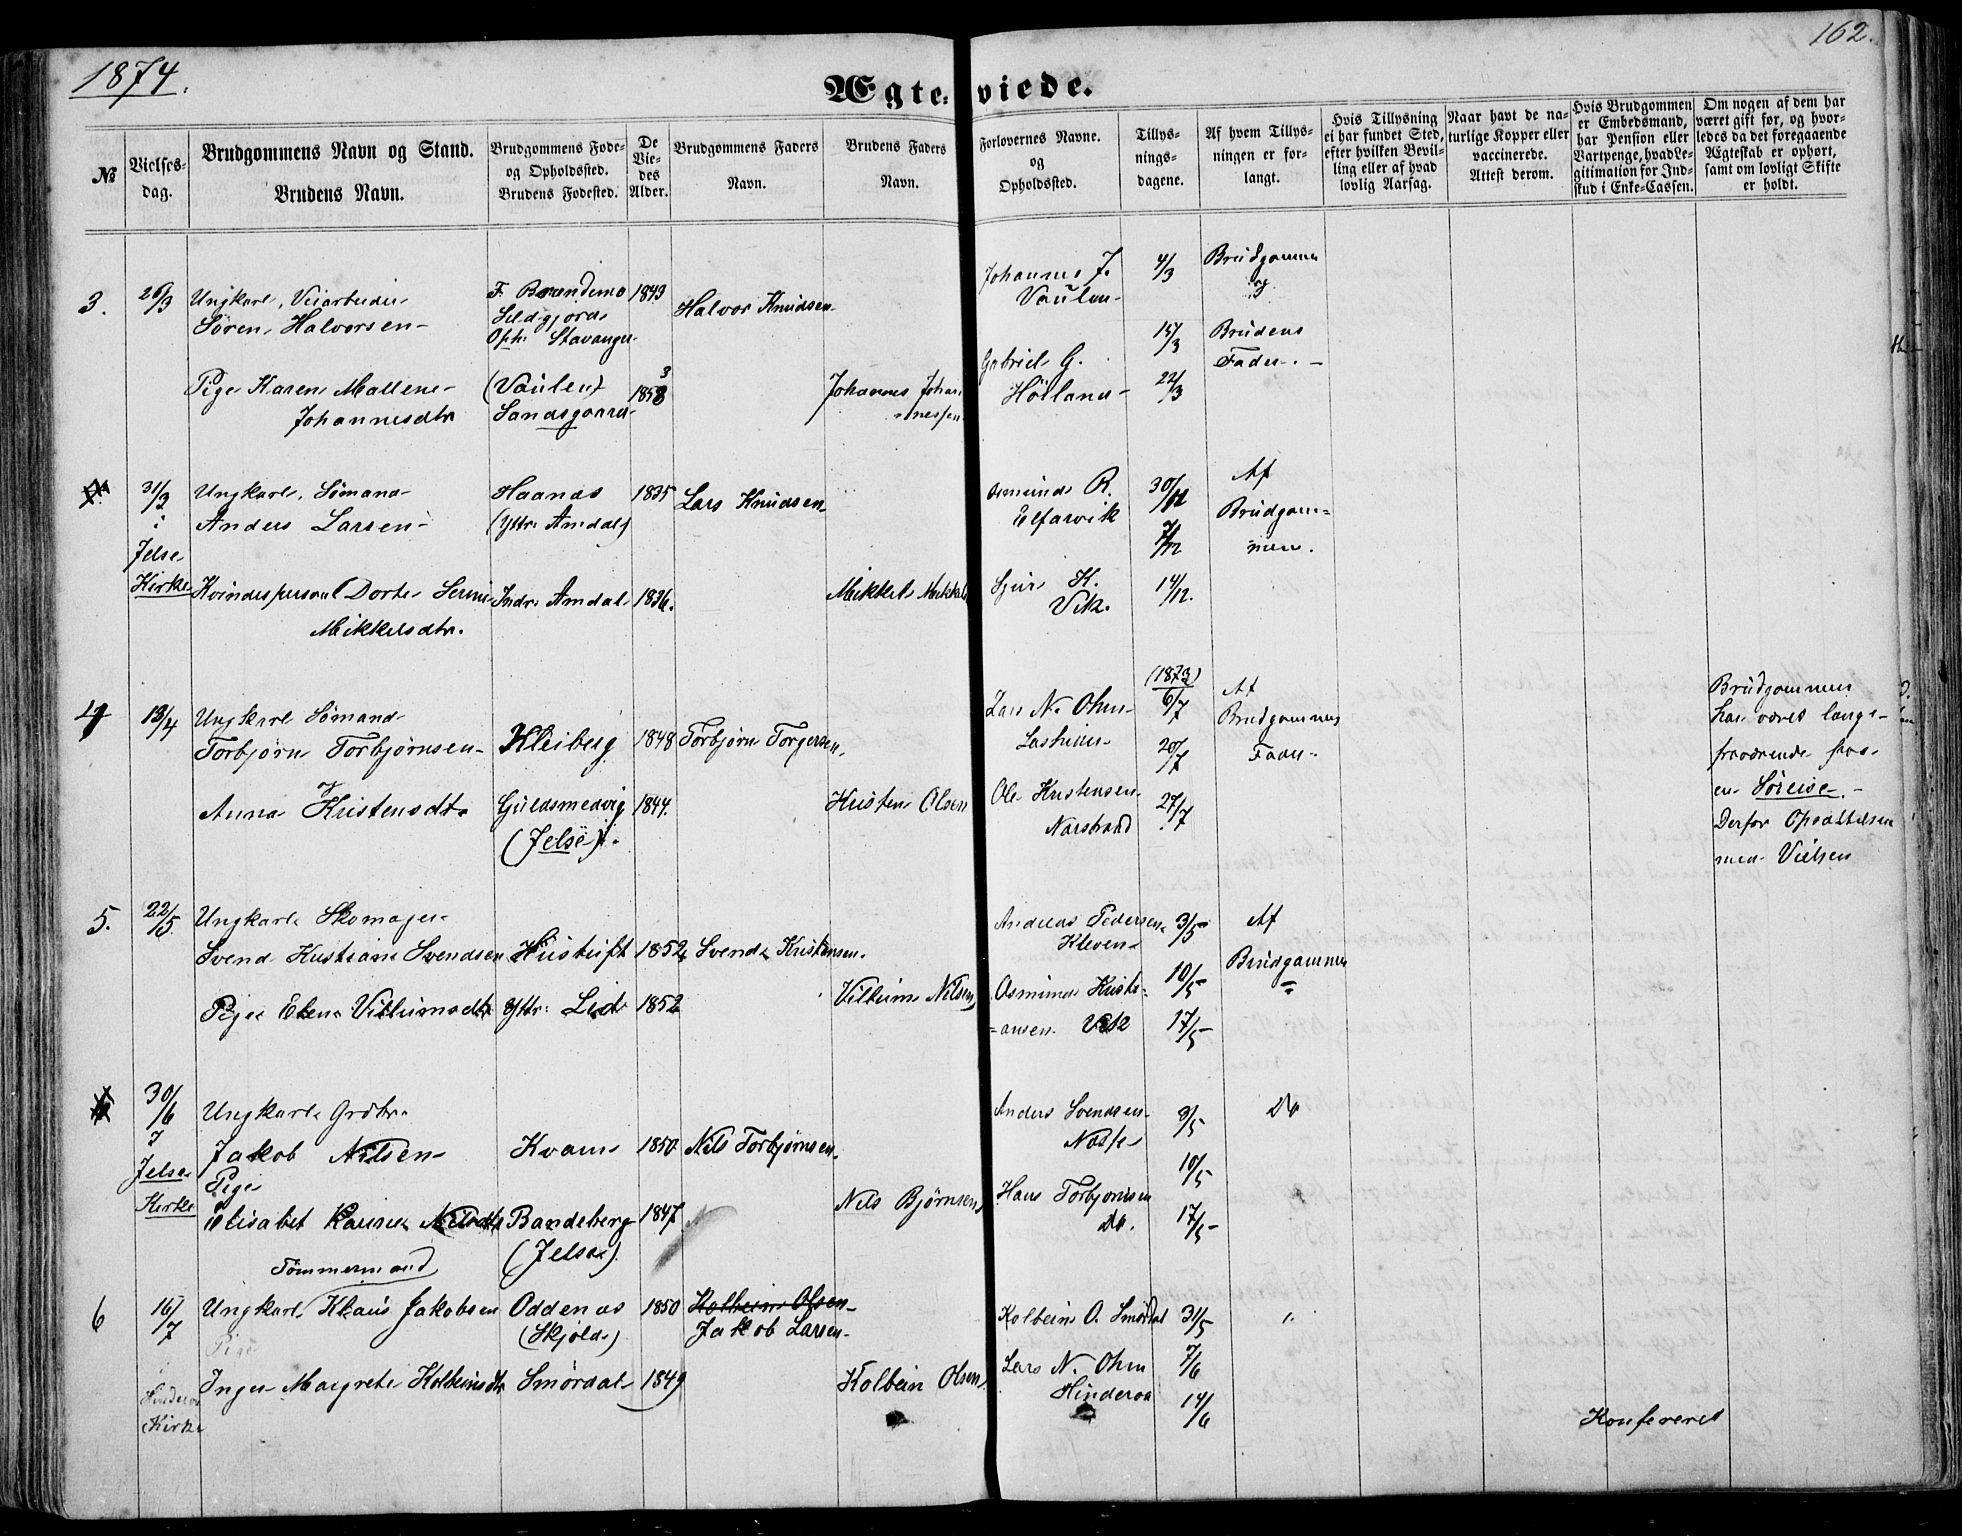 1874.
162.
Ægteviede.
№
Vielses-
dag.
Brudgommens Navn og Stand.
Brudens Navn.
Brudgommens Føde-
og Opholdssted.
Brudens Fødested.
De
Vie-
des
Alder.
Brudgommens Faders
Navn.
Brudens Faders
Navn.
Forlovernes Navne.
og
Opholdssted.
Tillys-
nings-
dagene.
Af hvem Tillys-
ningen er for-
langt.
Hvis Tillysning
ei har fundet Sted,
efter hvilken Bevil-
ling eller af hvad
lovlig Aarsag.
Naar havt de na-
turlige Kopper eller
vaccinerede.
Attest derom.
Hvis Brudgommen
er Embedsmand,
har Pension eller
Vartpenge, hvad Le-
gitimation for Ind-
skud i Enke-Cassen.
Om nogen af dem har
været gift før, og hvor-
ledes da det foregaaende
Ægteskab er ophørt,
samt om lovligt Skifte
er holdt.
3.
26/3
Ungkarl, Veiarbeider
Søren Halvorsen
F. Brandemo
Oph: Stavanger
1843
Halvor Knudsen
Pige Karen Mallene
Johannesdtr
(Vaulen)
Sandsgaard
1853
Johannes Johan
=nessen
Johannes J.
Vaulen
Gabriel G.
Høiland
4/3
15/3
22/3
Brudgommen
og
Brudens
Fader.
31/3
i
Jelse
Kirke
Ungkarl, Sømand
Anders Larsen
Haanæs
(Yttr. Amdal)
1835
Lars Knudsen
Kvindesperson Dorte Serine
Mikkelsdtr.
Indr. Amdal
1836.
Mikkel Mikkels
Osmund R.
Elfarvik
Sjur K.
Vik.
30/11
7/12
14/12.
Af
Brudgom=
men.
4
13/4
Ungkarl Sømand
Torbjørn Torbjørnsen
og
Anna Kristensdtr
Kleiberg
1848
Torbjørn Torgersen
Guldsmedvig
(Jelse).
1844.
Kristen Olsen
Lars N. Ohm
Ole Kristensen
Narstrand
(1873)
6/7
20/7
27/7
Af
Brudgommens
Fader
Brudgommen
har været længe
fraværende paa
en Søreise.
Derfor Opsættelsen
med Vielsen
5.
22/5
Ungkarl Skomager
Svend Kristian Svendsen
1852
Svend Kristensen.
Pige Elen Villumsdtr
Yttr: Lid
1852
Villum Nilsen
Andreas Pedersen
Kleven
Osmund Kristi=
=ansen Vik
3/5
10/5
17/5
Af
Brudgommen
30/6
I
Jelse
Kirke
Ungkarl Grdbr.
Jakob Nilsen
Kvam
1850
Nils Torbjørnsen
Pige
Elisabet Karine Nilsdtr
Bandeberg
(Jelse)
1847
Nils Bjørnsen
Anders Svendsen
Hans Torbjørnsen
Do.
3/5
10/5
17/5
Do
6
16/7
Hinderaa
Kirke
Tømmermand
Ungkarl Klaus Jakobsen
Oddenæs
(Skjold)
1850
Kolbein Olsen
Jakob Larsen
Pige
Inger Margrete Kolbeinsdtr
Smørdal
1849
Kolbein Olsen
Kolbein O. Smørdal
Lars N. Ohm
Hinderaa
31/5
7/6
14/6
Konfereret